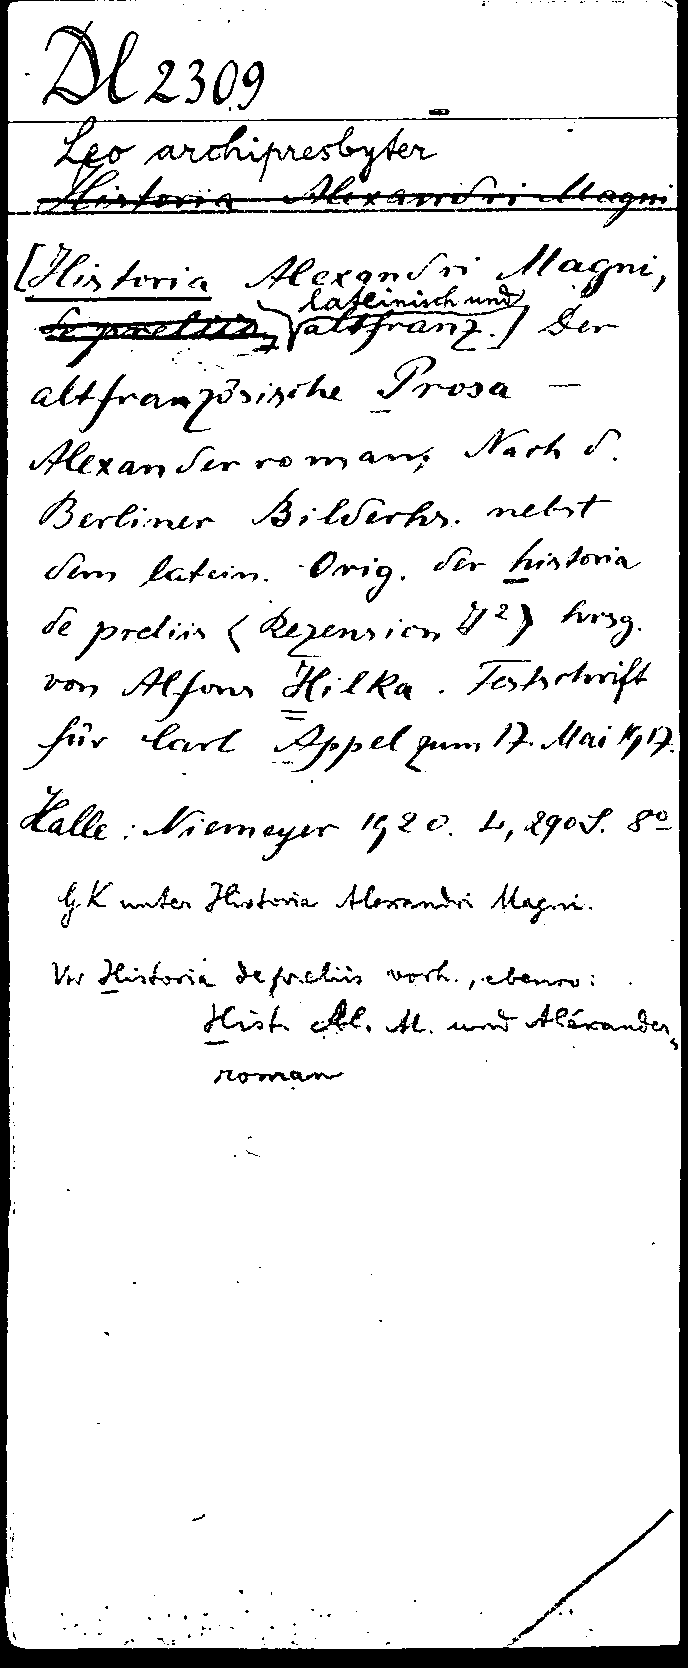 Dl 2309
Leo archipresbyter
Historia Alexandri Magni
[Historia Alexandri Magni,
lateinisch und
de preliis, altfranz.] Der
altfranzösische Prosa-
Alexanderroman, Nach d.
Berliner Bilderhs. nebst
dem latein. Orig. der historia
de preliis (Rezension J²) hrsg.
von Alfons Hilka. Festschrift
für Carl Appel zum 17. Mai 1917.
Halle: Niemeyer 1920. L, 290 S. 8°
GK unter Historia Alexandri Magni.
Vw Historia de preliis vorh., ebenso:
Hist. Al. M. und Alexander-
roman